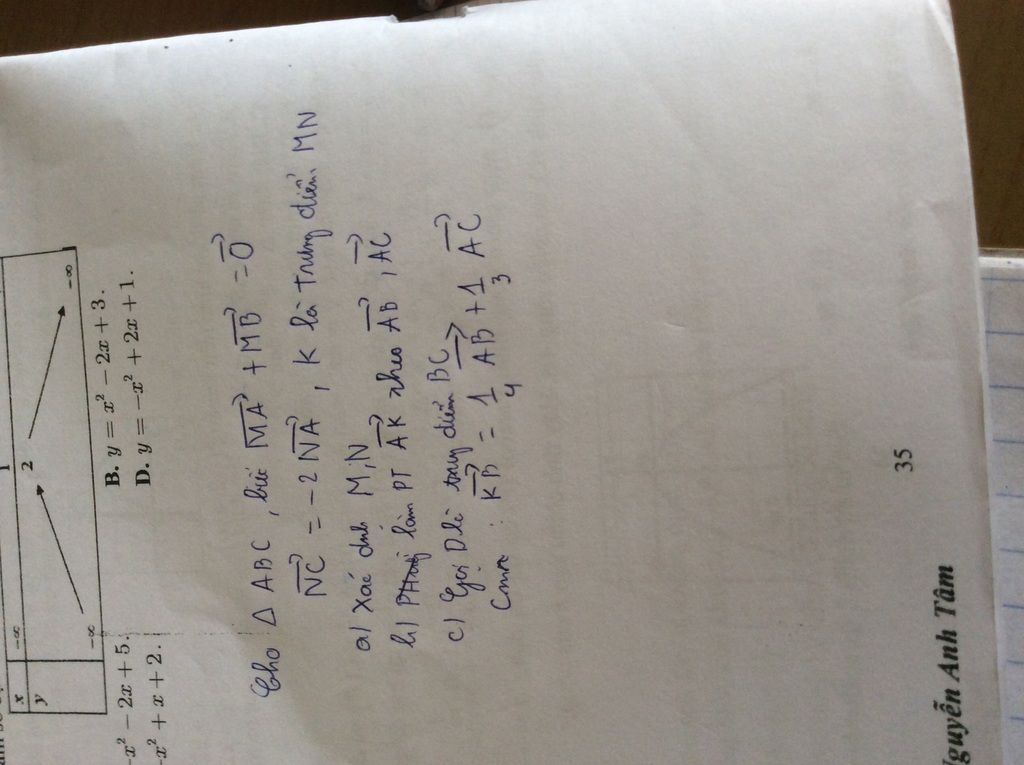 x −∞ 1
y −∞ 2 −∞
−x² − 2x + 5. B. y = x² − 2x + 3.
−x² + x + 2. D. y = −x² + 2x + 1.
Cho Δ ABC, biết \overrightarrow{MA} + \overrightarrow{MB} = \overrightarrow{0}
\overrightarrow{NC} = −2\overrightarrow{NA}, K là trung điểm MN
a) Xác định M, N
b) PT \overrightarrow{AK} theo \overrightarrow{AB}, \overrightarrow{AC}
c) Gọi D là trung điểm BC
Cmr: \overrightarrow{KD} = \frac{1}{4} \overrightarrow{AB} + \frac{1}{3} \overrightarrow{AC}
35
Nguyễn Anh Tâm